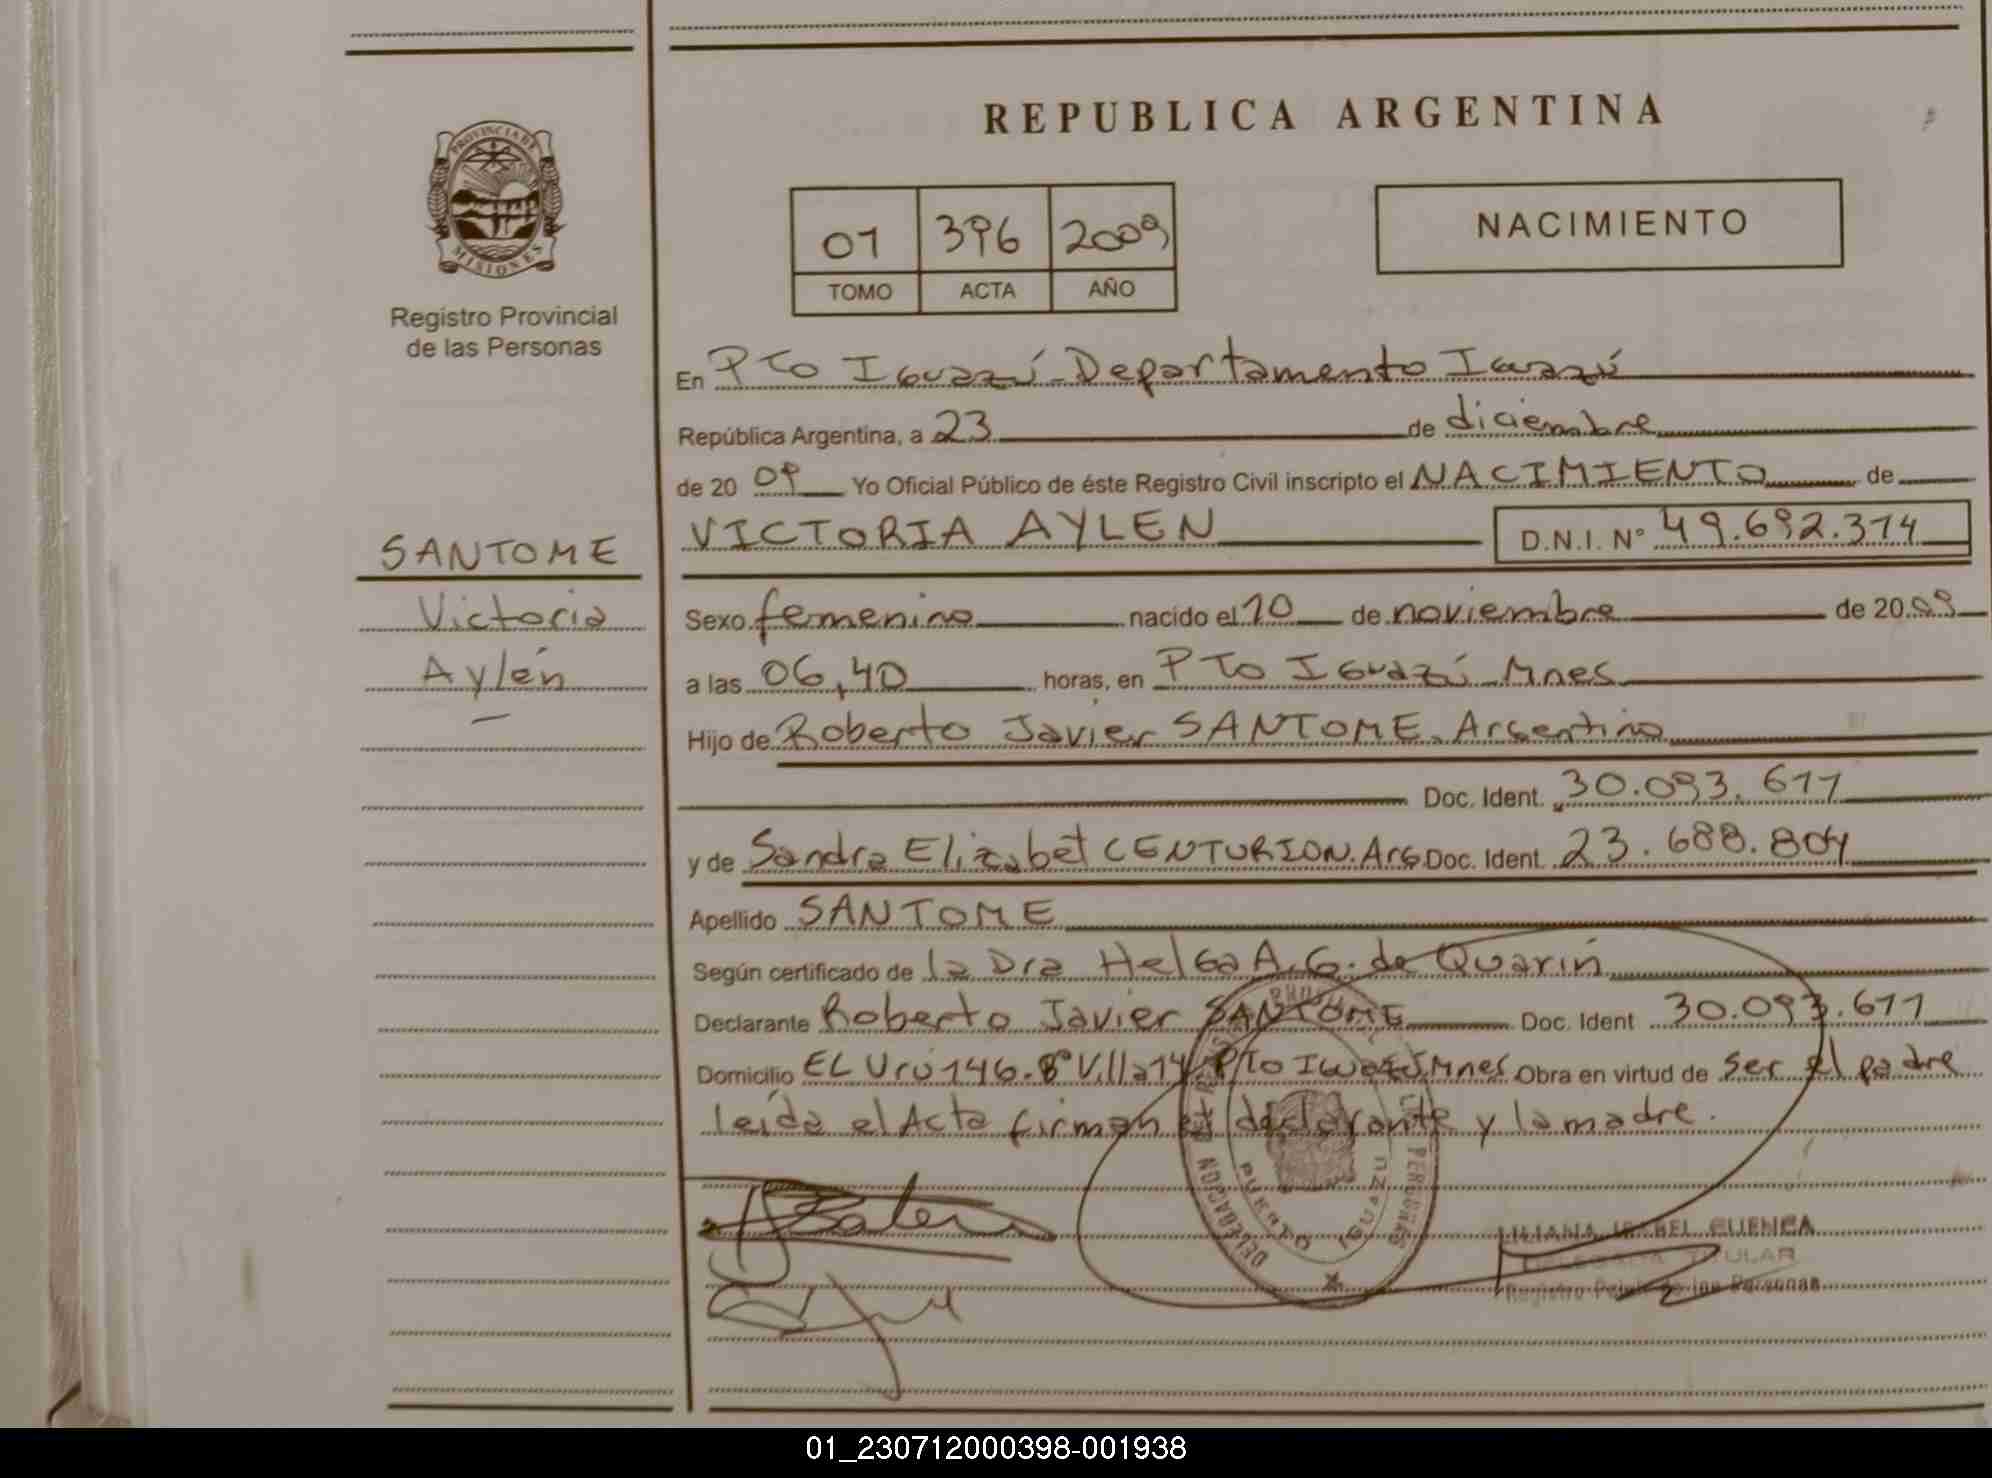 REPUBLICA ARGENTINA
PROVINCIA DE
MISIONES
Registro Provincial
de las Personas
01 396 2009
TOMO ACTA AÑO
NACIMIENTO
En Pto Iguazú - Departamento Iguazú
República Argentina, a 23 de diciembre
de 20 09 Yo Oficial Público de éste Registro Civil inscripto el NACIMIENTO de
SANTOME
Victoria
Aylén
VICTORIA AYLEN D.N.I. N° 49.692.374
Sexo femenino nacido el 10 de noviembre de 20 09
a las 06,40 horas, en Pto Iguazú Mnes
Hijo de Roberto Javier SANTOME. Argentino
Doc. Ident. 30.093.611
y de Sandra Elizabet CENTURION. Arg. Doc. Ident. 23.688.804
Apellido SANTOME
Según certificado de la Dra Helga A. G. de Quarin
Declarante Roberto Javier SANTOME Doc. Ident 30.093.611
Domicilio EL Urú 146. B° Villa 14 Pto Iguazú Mnes Obra en virtud de ser el padre
leída el Acta firman el declarante y la madre.
DELEGACION PERSONAS
PUERTO IGUAZU
LILIANA ISABEL CUENCA
DELEGADA TITULAR
Registro de las Personas
01_230712000398-001938